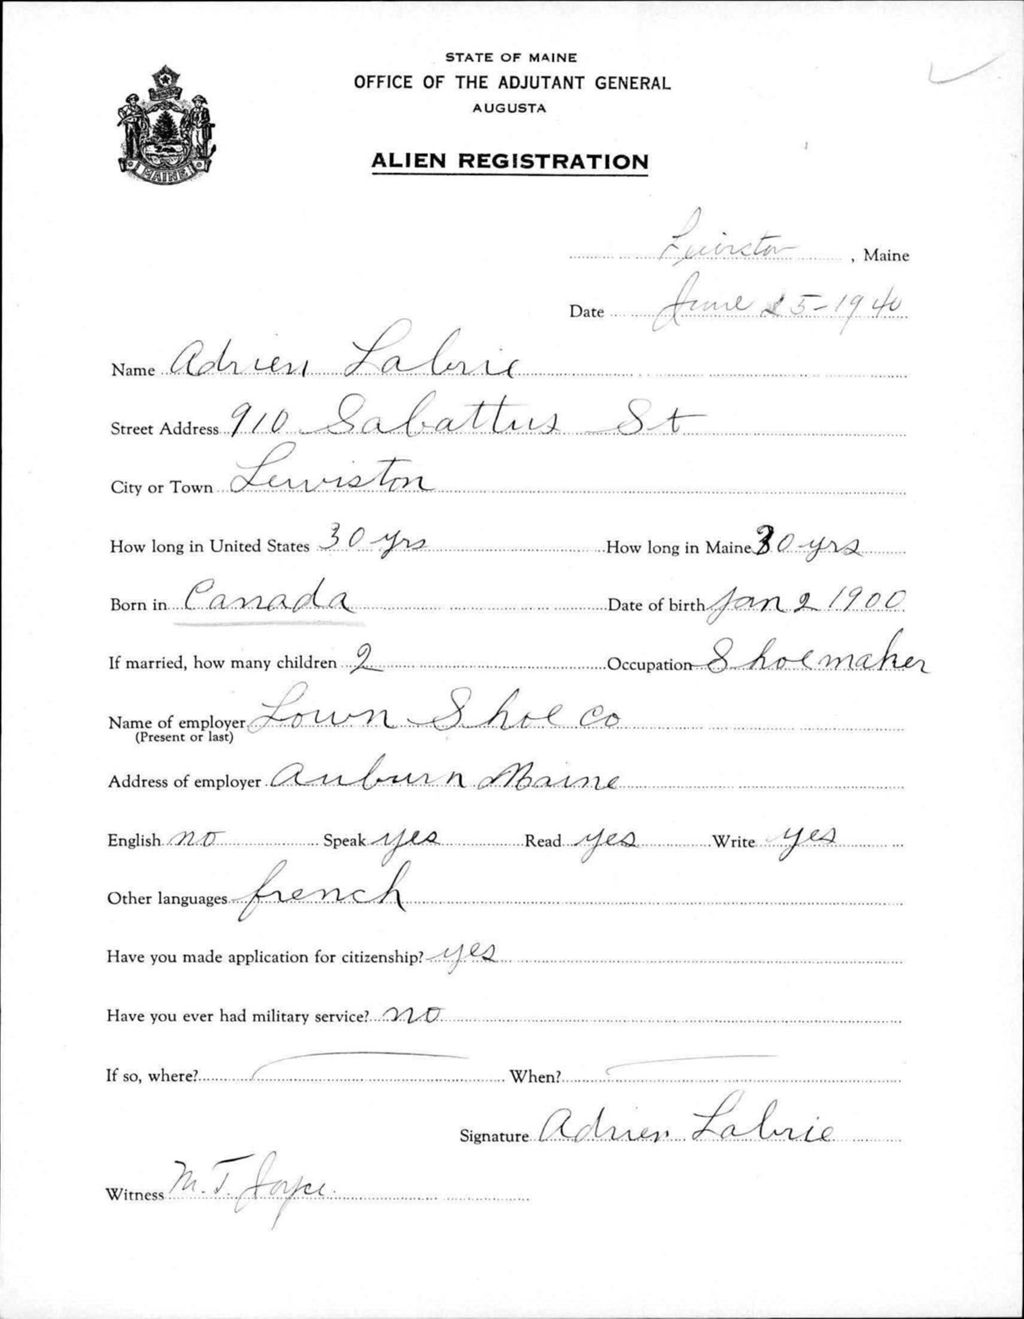 STATE OF MAINE
OFFICE OF THE ADJUTANT GENERAL
AUGUSTA
ALIEN REGISTRATION
MAINE
Lewiston, Maine
Date June 25-1940
Name Adrien Labrie
Street Address 910 Sabattus St
City or Town Lewiston
How long in United States 30 yrs How long in Maine 30 yrs
Born in Canada Date of birth Jan 2 1900
If married, how many children 2 Occupation Shoemaker
Name of employer Lown Shoe Co
(Present or last)
Address of employer Auburn Maine
English no Speak yes Read yes Write yes
Other languages french
Have you made application for citizenship? yes
Have you ever had military service? no
If so, where? When?
Signature Adrien Labrie
Witness M. T. Joyce.